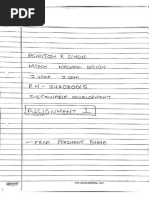 ASHUTOSH R SINGH
MTECH MACHINE DESIGN
I YEAR I SEM
RN - 242090005
SUSTAINABLE DEVELOPMENT
ASSIGNMENT 1
- FROM PRASHANT